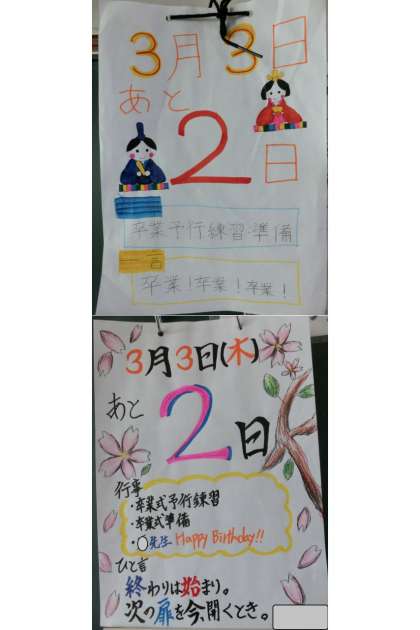 3月3日
あと
2日
卒業予行練習・準備
一言
卒業！卒業！卒業！
3月3日(木)
あと
2日
行事
・卒業式予行練習
・卒業式準備
・○先生 Happy Birthday!!
ひと言
終わりは始まり。
次の扉を今、開くとき。